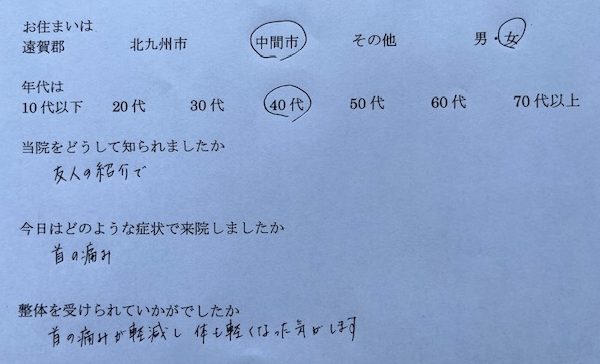 お住まいは
遠賀郡 北九州市 中間市 その他 男・女
年代は
10代以下 20代 30代 40代 50代 60代 70代以上
当院をどうして知られましたか
友人の紹介で
今日はどのような症状で来院しましたか
首の痛み
整体を受けられていかがでしたか
首の痛みが軽減し 体も軽くなった気がします